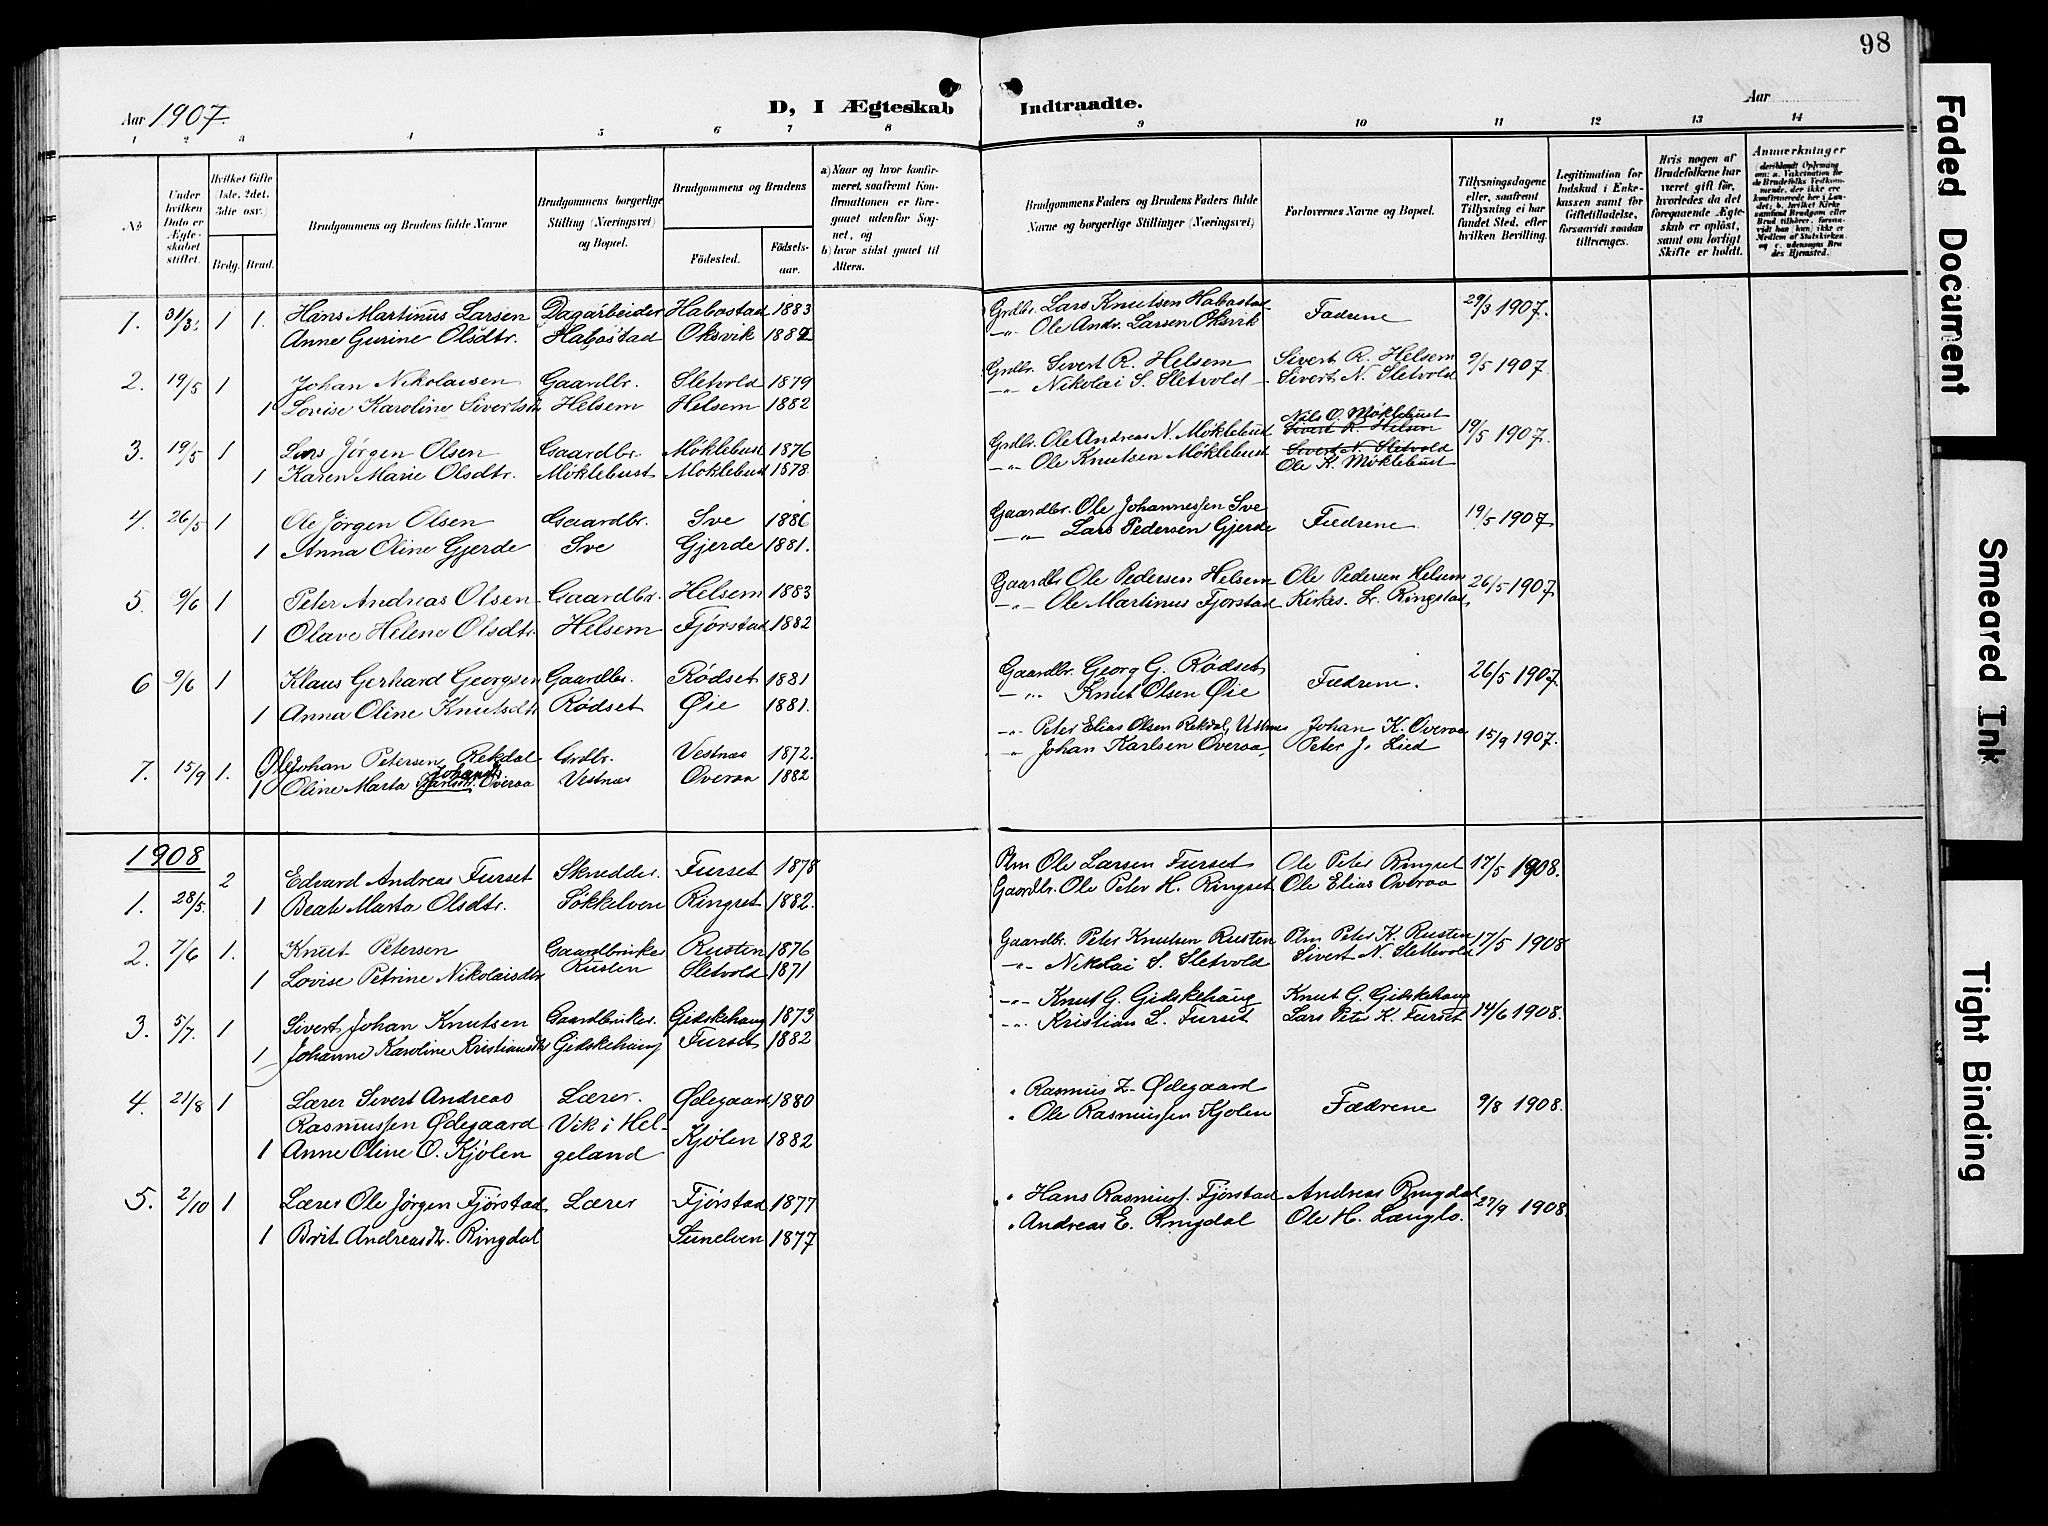 98
Aar 1907.
D, I Ægteskab Indtraadte.
Aar
1 2 3 4 5 6 7 8 9 10 11 12 13 14
No
Under hvilken Dato er Ægteskabet stiftet.
Hvilket Gifte (1ste, 2det, 3die osv.)
Brdg. Brud.
Brudgommens og Brudens fulde Navne
Brudgommens borgerlige Stilling (Næringsvei) og Bopæl.
Brudgommens og Brudens
Fødested. Fødselsaar.
a) Naar og hvor konfirmeret, saafremt Konfirmationen er foregaaet udenfor Sognet, og
b) hvor sidst gaaet til Alters.
Brudgommens Faders og Brudens Faders fulde Navne og borgerlige Stillinger (Næringsvei)
Forlovernes Navne og Bopæl.
Tillysningsdagene eller, saafremt Tillysning ei har fundet Sted, efter hvilken Bevilling.
Legitimation for Indskud i Enkekassen samt for Giftetilladelse, forsaavidt saadan tiltrænges.
Hvis nogen af Brudefolkene har været gift før, hvorledes da det foregaaende Ægteskab er opløst, samt om lovligt Skifte er holdt.
Anmærkninger
1. 31/3. 1 1. Hans Martinus Larsen Dagarbeider Habostad 1883 Grdbr. Lars Knutsen Habostad Fædrene 29/3 1907.
Anne Gurine Olsdtr. Habostad Oksvik 1882 -"- Ole Andr. Larsen Oksvik
2. 19/5 1 Johan Nikolaisen Gaardbr. Sletvold 1879 Grdbr. Sivert R. Helsem Sivert R. Helsem 9/5 1907.
1 Lovise Karoline Sivertsdtr Helsem Helsem 1882 -"- Nikolai S. Sletvold Sivert N. Sletvold
3. 19/5 1 Lars Jørgen Olsen Gaardbr. Møklebust 1876 Grdbr. Ole Andreas N. Møklebust Nils O. Møklebust 19/5 1907.
Sivert R. Helsem
1 Karen Marie Olsdtr. Møklebust Møklebust 1878. -"- Ole Knutsen Møklebust Sivert N. Sletvold
Ole K. Møklebust
4. 26/5 1 Ole Jørgen Olsen Gaardbr. Sve 1886 Gaardbr. Ole Johannessen Sve Fædrene 19/5 1907
1 Anna Oline Gjerde Sve Gjerde 1881. -"- Lars Pedersen Gjerde
5. 9/6 1 Peter Andreas Olsen Gaardbr. Helsem 1883 Gaardbr Ole Pedersen Helsem Ole Pedersen Helsem 26/5 1907
1 Olave Helene Olsdtr. Helsem Fjørstad 1882 -"- Ole Martinus Fjørstad Kirkes. Lr. Ringstad
6 9/6 1 Klaus Gerhard Georgsen Gaardbr. Rødset 1881 Gaardbr. Georg G. Rødset Fædrene. 26/5 1907.
1 Anna Oline Knutsdtr Rødset Øie 1881. -"- Knut Olsen Øie
7. 15/9 1. Ole Johan Petersen Rekdal Grdbr. Vestnæs 1872. -"- Peter Elias Olsen Rekdal, Vestnæs Johan K. Overaa 15/9 1907.
1 Oline Marta Johansdtr. Overaa Vestnæs Overaa 1882 -"- Johan Karlsen Overaa Peter J. Lied
1908
1. 28/5. 2 Edvard Andreas Furset Skrædder. Furset 1878 Plm Ole Larsen Furset Ole Peter Ringset 17/5 1908.
1 Beate Marta Olsdtr. Søkkelven Ringset 1882. Gaardbr. Ole Peter H. Ringset Ole Elias Overaa
2. 7/6 1. Knut Petersen Gaardbruker Rusten 1876 Gaardbr. Peter Knutsen Rusten Plm Peter K. Rusten 17/5 1908
1 Lovise Petrine Nikolaisdtr Rusten Sletvold 1871 -"- Nikolai S. Sletvold Sivert N. Slettevold
3. 5/7. 1 Sivert Johan Knutsen Gaardbruker. Gidskehaug 1873 -"- Knut G. Gidskehaug Knut G. Gidskehaug 14/6 1908.
1 Johanne Karoline Kristiansdtr Gidskehaug Furset 1882 -"- Kristian L. Furset Lars Peter K. Furset
4. 21/8 1 Lærer Sivert Andreas Lærer. Ødegaard 1880 " Rasmus Z. Ødegaard Fædrene 9/8 1908.
Rasmussen Ødegaard Vik i Hel-
1 Anne Oline O. Kjølen geland Kjølen 1882 " Ole Rasmussen Kjølen
5. 2/10 1 Lærer Ole Jørgen Fjørstad Lærer Fjørstad 1877 " Hans Rasmuss. Fjørstad Andreas Ringdal 27/9 1908.
1 Brit Andreasdtr. Ringdal Sunelven 1877 " Andreas E. Ringdal Ole H. Langlo.
Faded Document
Smeared Ink
Tight Binding